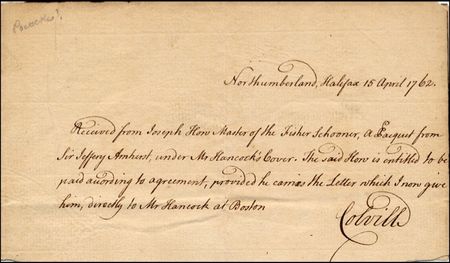 Northumberland, Halifax 15 April 1762.
Received from Joseph How Master of the Fisher Schooner, a Pacquet from
Sir Jeffery Amherst, under Mr Hancock's Cover. The said How is entitled to be
paid according to agreement, provided he carries the Letter which I now give
him, directly to Mr Hancock at Boston
Colvill